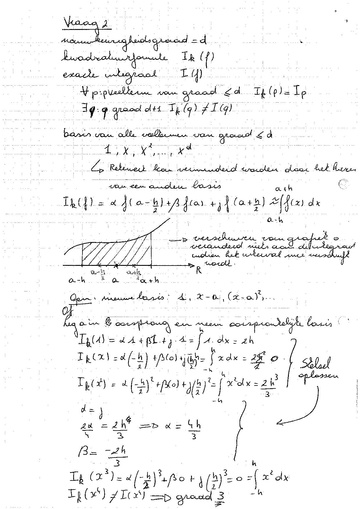 Vraag 2
nauwkeurigheidsgraad = d
kwadratuurformule I_k(f)
exacte integraal I(f)
∀ p: pveelterm van graad ≤ d I_k(p) = I p
∃ q: q graad d+1 I_k(q) ≠ I(q)
basis van alle veeltermen van graad ≤ d
1, x, x², ..., x^d
↳ Rekenwerk kan verminderd worden door het kiezen
van een andere basis
I_k(f) = α f(a - h/2) + β f(a) + γ f(a + h/2) ≈ ∫_{a-h}^{a+h} f(x) dx
→ verschuiven van grafiek
verandert niets aan de integraal
indien het interval mee verschuift
wordt.
a-h a-h/2 a a+h/2 a+h R
Opm. nieuwe basis: 1, x-a, (x-a)²,...
Of
leg a in oorsprong en neem oorspronkelijke basis
I_k(1) = α·1 + β·1 + γ·1 = ∫_{-h}^{h} 1. dx = 2h
I_k(x) = α(-h/2) + β(0) + γ(h/2) = ∫_{-h}^{h} x dx = 0
I_k(x²) = α(-h/2)² + β(0) + γ(h/2)² = ∫_{-h}^{h} x² dx = 2h³/3
Stelsel
oplossen
α = γ
2α/4 = 2h/3 ⟹ α = 4h/3
β = -2h/3
I_k(x³) = α(-h/2)³ + β0 + γ(h/2)³ = 0 = ∫_{-h}^{h} x² dx
I_k(x⁴) ≠ I(x⁴) ⟹ graad 3